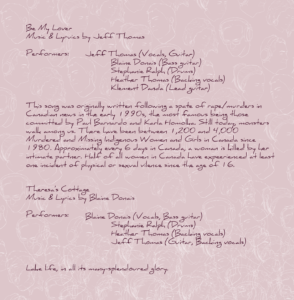 Be My Lover
Music & Lyrics by Jeff Thomas
Performers: Jeff Thomas (Vocals, Guitar)
Blaine Donais (Bass guitar)
Stephanie Ralph, (Drums)
Heather Thomas (Backing vocals)
Klement Danda (Lead guitar)
This song was originally written following a spate of rape/murders in
Canadian news in the early 1990s, the most famous being those
committed by Paul Bernardo and Karla Homolka. Still today, monsters
walk among us. There have been between 1,200 and 4,000
Murdered and Missing Indigenous Women and Girls in Canada since
1980. Approximately every 6 days in Canada, a woman is killed by her
intimate partner. Half of all women in Canada have experienced at least
one incident of physical or sexual violence since the age of 16.
Theresa's Cottage
Music & Lyrics by Blaine Donais
Performers: Blaine Donais (Vocals, Bass guitar)
Stephanie Ralph (Drums)
Heather Thomas (Backing vocals)
Jeff Thomas (Guitar, Backing vocals)
Lake life, in all its many-splendoured glory.